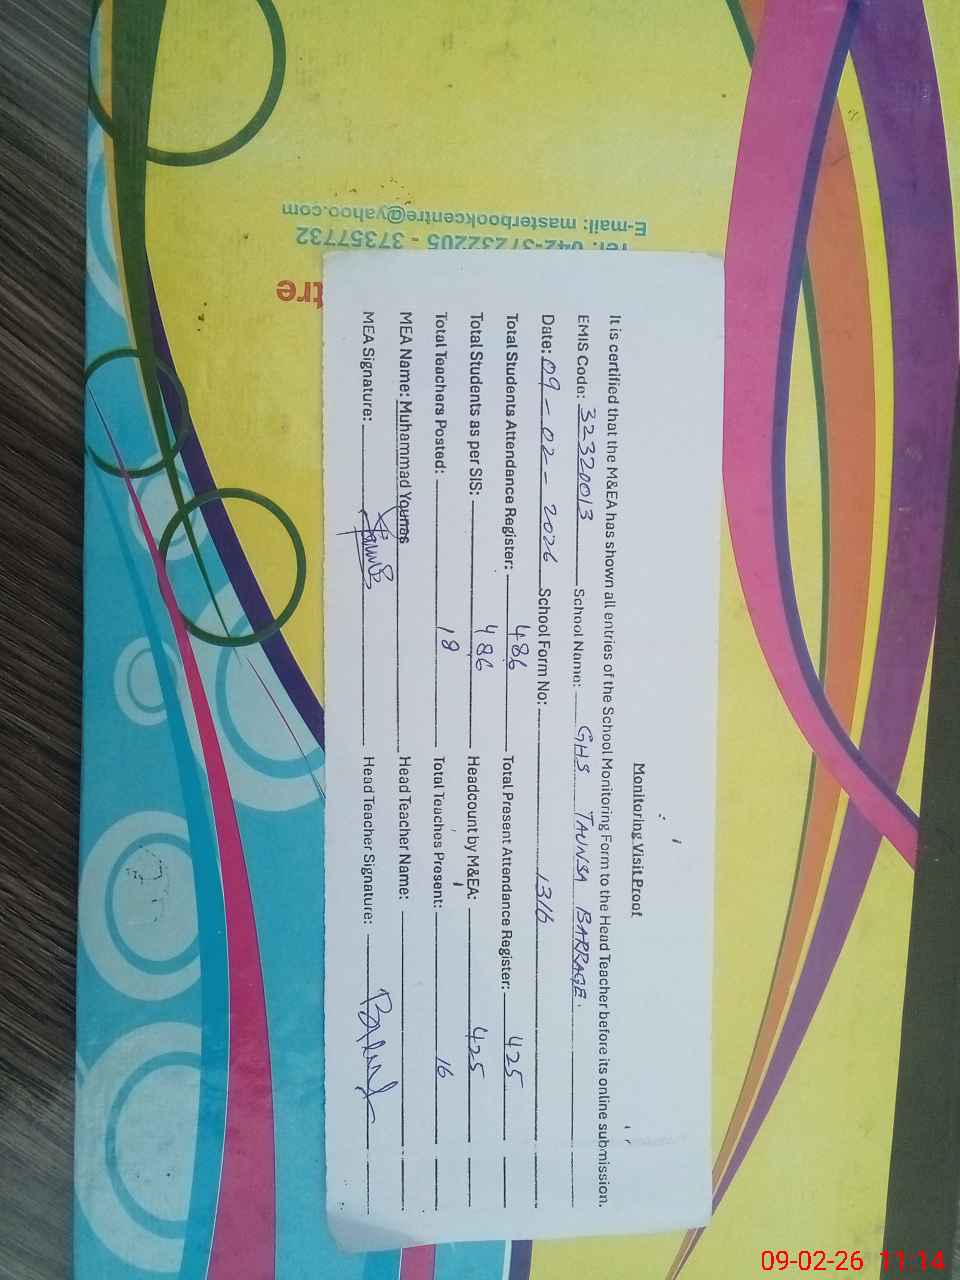 Monitoring Visit Proof
It is certified that the M&EA has shown all entries of the School Monitoring Form to the Head Teacher before its online submission.
EMIS Code: 32320013 School Name: GHS TAUNSA BARRAGE.
Date: 09-02-2026 School Form No: 1316
Total Students Attendance Register: 486 Total Present Attendance Register: 425
Total Students as per SIS: 486 Headcount by M&EA: 425
Total Teachers Posted: 18 Total Teaches Present: 16
MEA Name: Muhammad Younas Head Teacher Name:
MEA Signature: Head Teacher Signature:
tre
Tel: 042-37232205 - 37357732
E-mail: masterbookcentre@yahoo.com
09-02-26 11:14